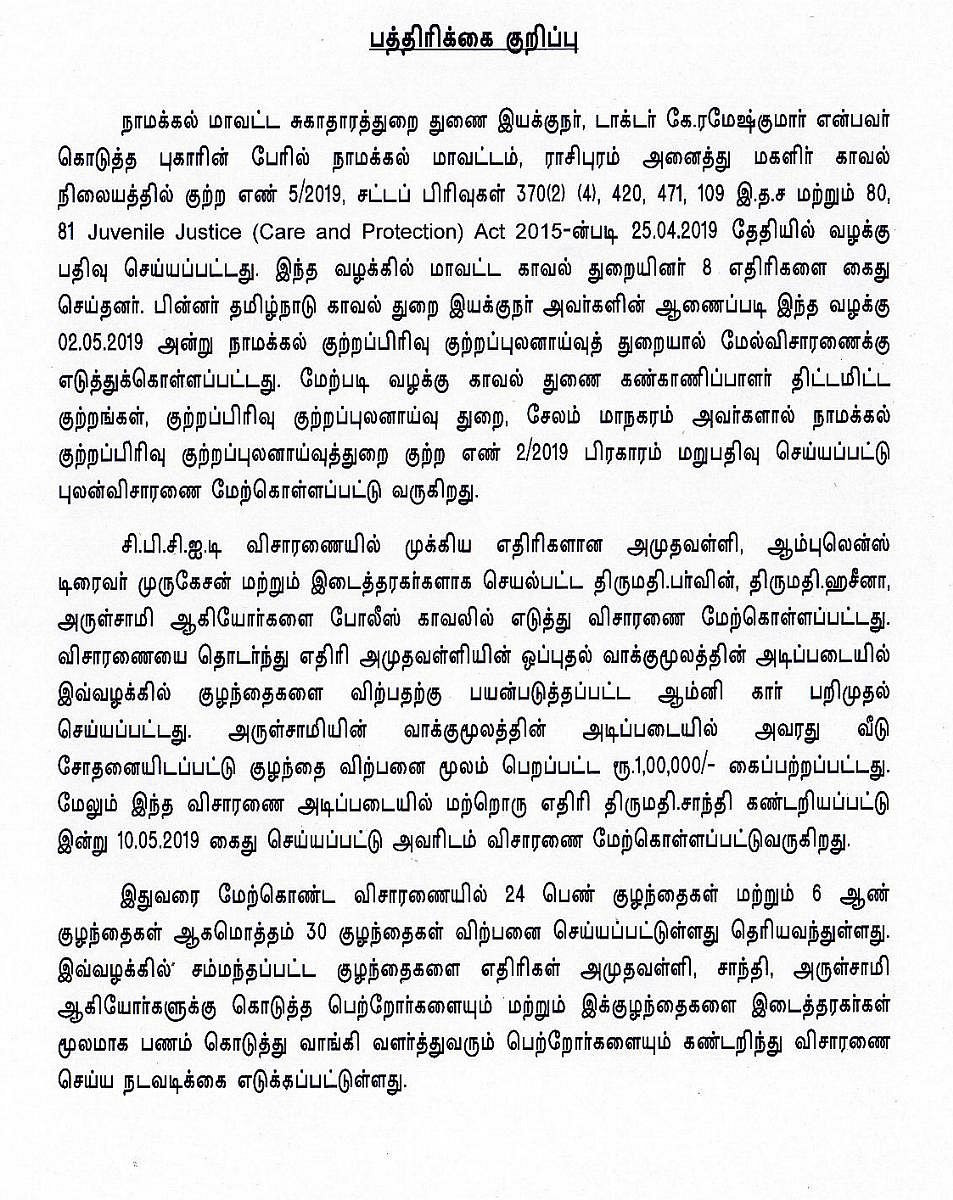 பத்திரிக்கை குறிப்பு
நாமக்கல் மாவட்ட சுகாதாரத்துறை துணை இயக்குநர், டாக்டர் கே.ரமேஷ்குமார் என்பவர்
கொடுத்த புகாரின் பேரில் நாமக்கல் மாவட்டம், ராசிபுரம் அனைத்து மகளிர் காவல்
நிலையத்தில் குற்ற எண் 5/2019, சட்டப் பிரிவுகள் 370(2) (4), 420, 471, 109 இ.த.ச மற்றும் 80,
81 Juvenile Justice (Care and Protection) Act 2015-ன்படி 25.04.2019 தேதியில் வழக்கு
பதிவு செய்யப்பட்டது. இந்த வழக்கில் மாவட்ட காவல் துறையினர் 8 எதிரிகளை கைது
செய்தனர். பின்னர் தமிழ்நாடு காவல் துறை இயக்குநர் அவர்களின் ஆணைப்படி இந்த வழக்கு
02.05.2019 அன்று நாமக்கல் குற்றப்பிரிவு குற்றப்புலனாய்வுத் துறையால் மேல்விசாரணைக்கு
எடுத்துக்கொள்ளப்பட்டது. மேற்படி வழக்கு காவல் துணை கண்காணிப்பாளர் திட்டமிட்ட
குற்றங்கள், குற்றப்பிரிவு குற்றப்புலனாய்வு துறை, சேலம் மாநகரம் அவர்களால் நாமக்கல்
குற்றப்பிரிவு குற்றப்புலனாய்வுத்துறை குற்ற எண் 2/2019 பிரகாரம் மறுபதிவு செய்யப்பட்டு
புலன்விசாரணை மேற்கொள்ளப்பட்டு வருகிறது.
சி.பி.சி.ஐ.டி விசாரணையில் முக்கிய எதிரிகளான அமுதவள்ளி, ஆம்புலென்ஸ்
டிரைவர் முருகேசன் மற்றும் இடைத்தரகர்களாக செயல்பட்ட திருமதி.பர்வின், திருமதி.ஹசீனா,
அருள்சாமி ஆகியோர்களை போலீஸ் காவலில் எடுத்து விசாரணை மேற்கொள்ளப்பட்டது.
விசாரணையை தொடர்ந்து எதிரி அமுதவள்ளியின் ஒப்புதல் வாக்குமூலத்தின் அடிப்படையில்
இவ்வழக்கில் குழந்தைகளை விற்பதற்கு பயன்படுத்தப்பட்ட ஆம்னி கார் பறிமுதல்
செய்யப்பட்டது. அருள்சாமியின் வாக்குமூலத்தின் அடிப்படையில் அவரது வீடு
சோதனையிடப்பட்டு குழந்தை விற்பனை மூலம் பெறப்பட்ட ரூ.1,00,000/- கைப்பற்றப்பட்டது.
மேலும் இந்த விசாரணை அடிப்படையில் மற்றொரு எதிரி திருமதி.சாந்தி கண்டறியப்பட்டு
இன்று 10.05.2019 கைது செய்யப்பட்டு அவரிடம் விசாரணை மேற்கொள்ளப்பட்டுவருகிறது.
இதுவரை மேற்கொண்ட விசாரணையில் 24 பெண் குழந்தைகள் மற்றும் 6 ஆண்
குழந்தைகள் ஆகமொத்தம் 30 குழந்தைகள் விற்பனை செய்யப்பட்டுள்ளது தெரியவந்துள்ளது.
இவ்வழக்கில் சம்மந்தப்பட்ட குழந்தைகளை எதிரிகள் அமுதவள்ளி, சாந்தி, அருள்சாமி
ஆகியோர்களுக்கு கொடுத்த பெற்றோர்களையும் மற்றும் இக்குழந்தைகளை இடைத்தரகர்கள்
மூலமாக பணம் கொடுத்து வாங்கி வளர்த்துவரும் பெற்றோர்களையும் கண்டறிந்து விசாரணை
செய்ய நடவடிக்கை எடுக்கப்பட்டுள்ளது.